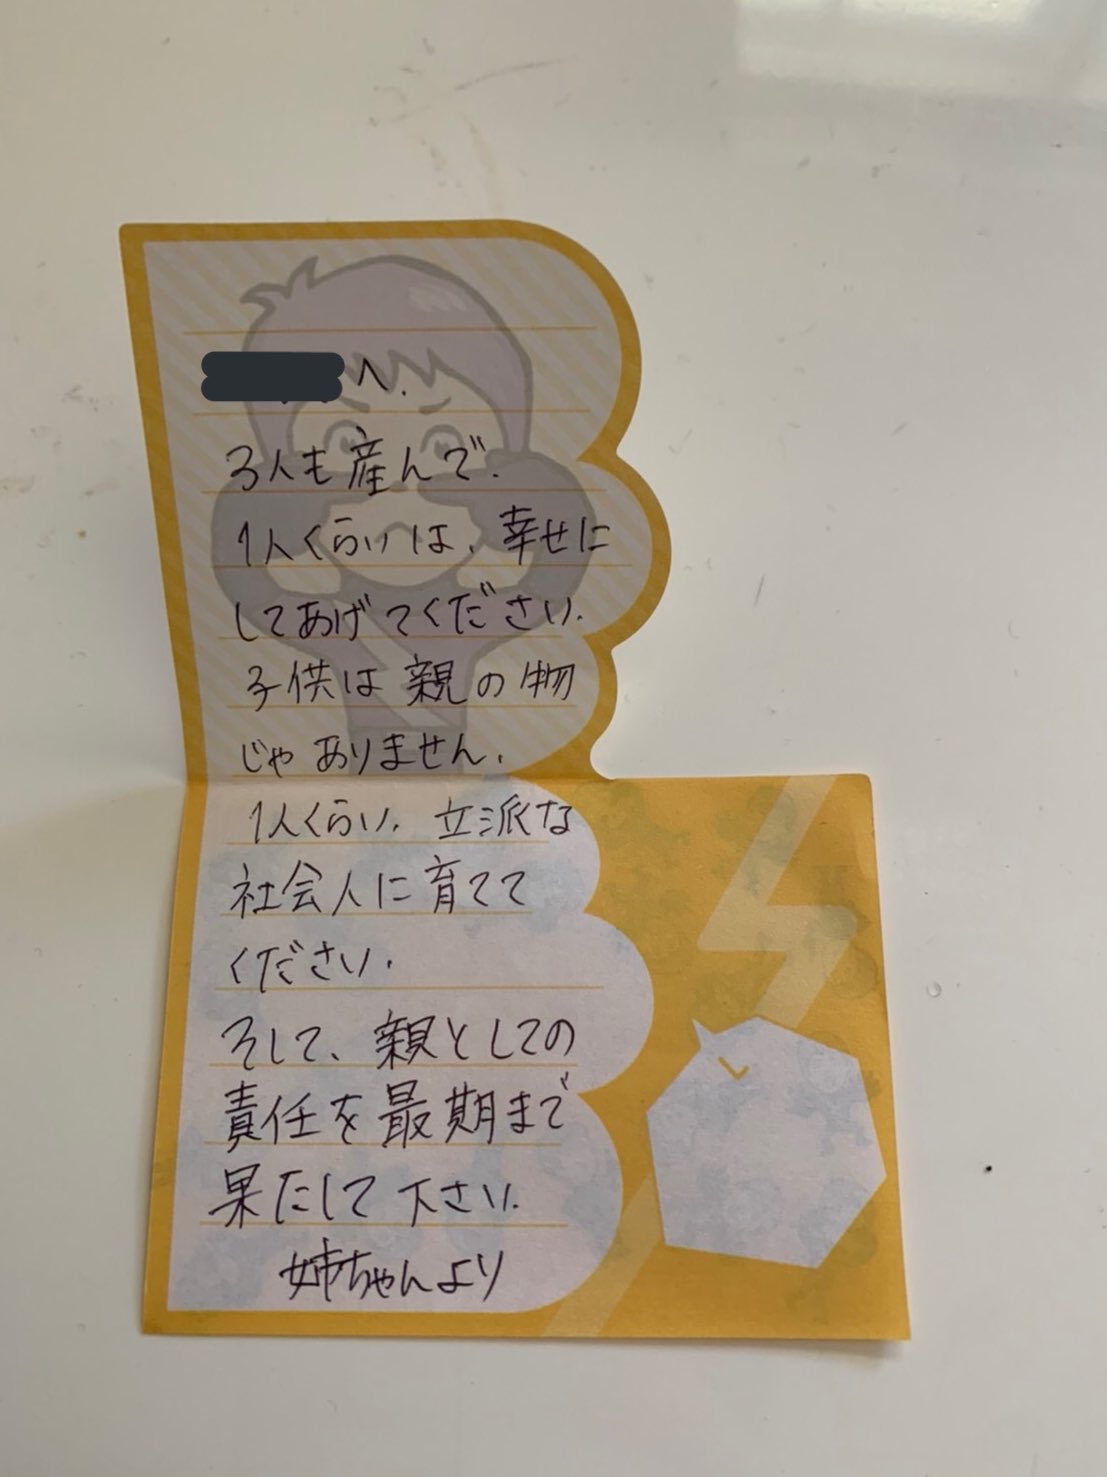 へ.
3人も産んで.
1人くらいは、幸せに
してあげてください.
子供は親の物
じゃありません.
1人くらい.立派な
社会人に育てて
ください.
そして、親としての
責任を最期まで
果たして下さい.
姉ちゃんより